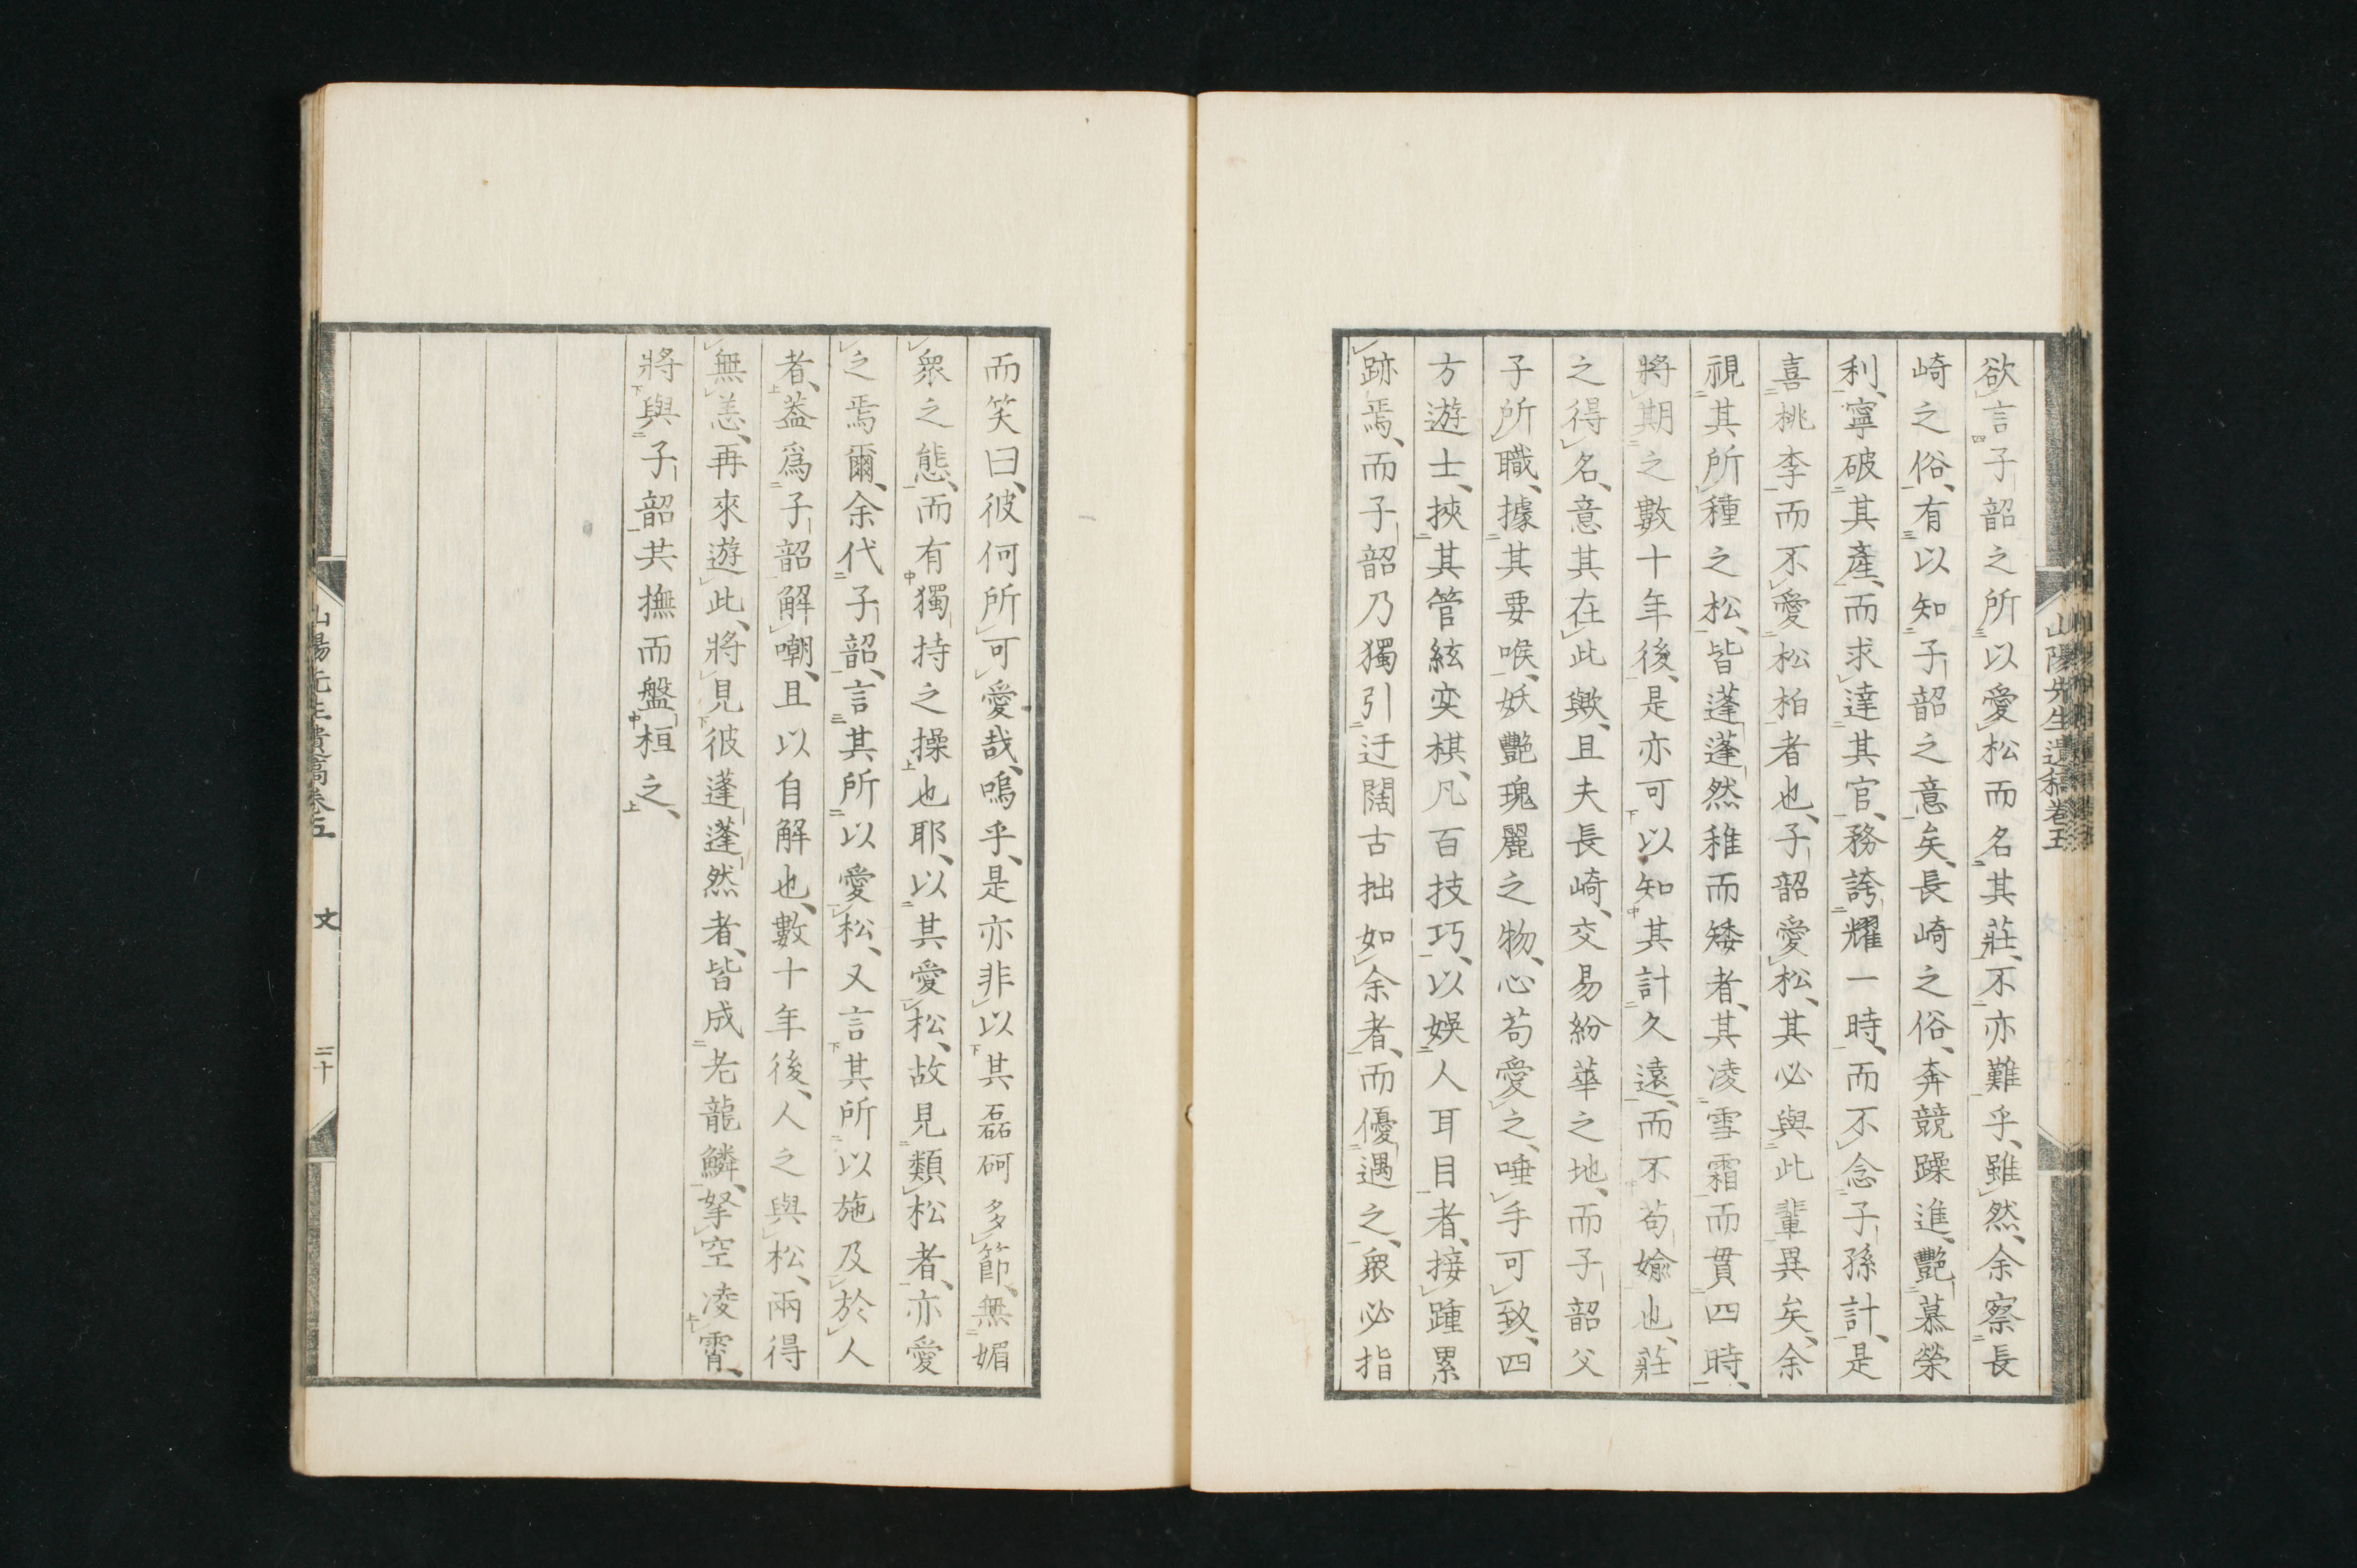 欲言子韶之所以愛松而名其莊、不亦難乎、雖然、余察長
崎之俗、有以知子韶之意矣、長崎之俗、奔競躁進、艷慕榮
利、寧破其產、而求達其官、務誇耀一時、而不念子孫計、是
喜桃李而不愛松柏者也、子韶愛松、其必與此輩異矣、余
視其所種之松、皆蓬蓬然稚而矮者、其凌雪霜而貫四時、
將期之數十年後、是亦可以知其計久遠、而不苟媮也、莊
之得名、意其在此歟、且夫長崎、交易紛華之地、而子韶父
子所職、據其要喉、妖艷瑰麗之物、心苟愛之、唾手可致、四
方遊士、挾其管絃奕棋、凡百技巧、以娛人耳目者、接踵累
跡焉、而子韶乃獨引迂闊古拙如余者、而優遇之、衆必指
山陽先生遺稿卷五
而笑曰、彼何所可愛哉、嗚乎、是亦非以其磊砢多節、無媚
衆之態、而有獨持之操也耶、以其愛松、故見類松者、亦愛
之焉爾、余代子韶、言其所以愛松、又言其所以施及於人
者、蓋爲子韶解嘲、且以自解也、數十年後、人之與松、兩得
無恙、再來遊此、將見彼蓬蓬然者、皆成老龍鱗、拏空凌霄、
將與子韶共撫而盤桓之、
山陽先生遺稿卷五 文 二十